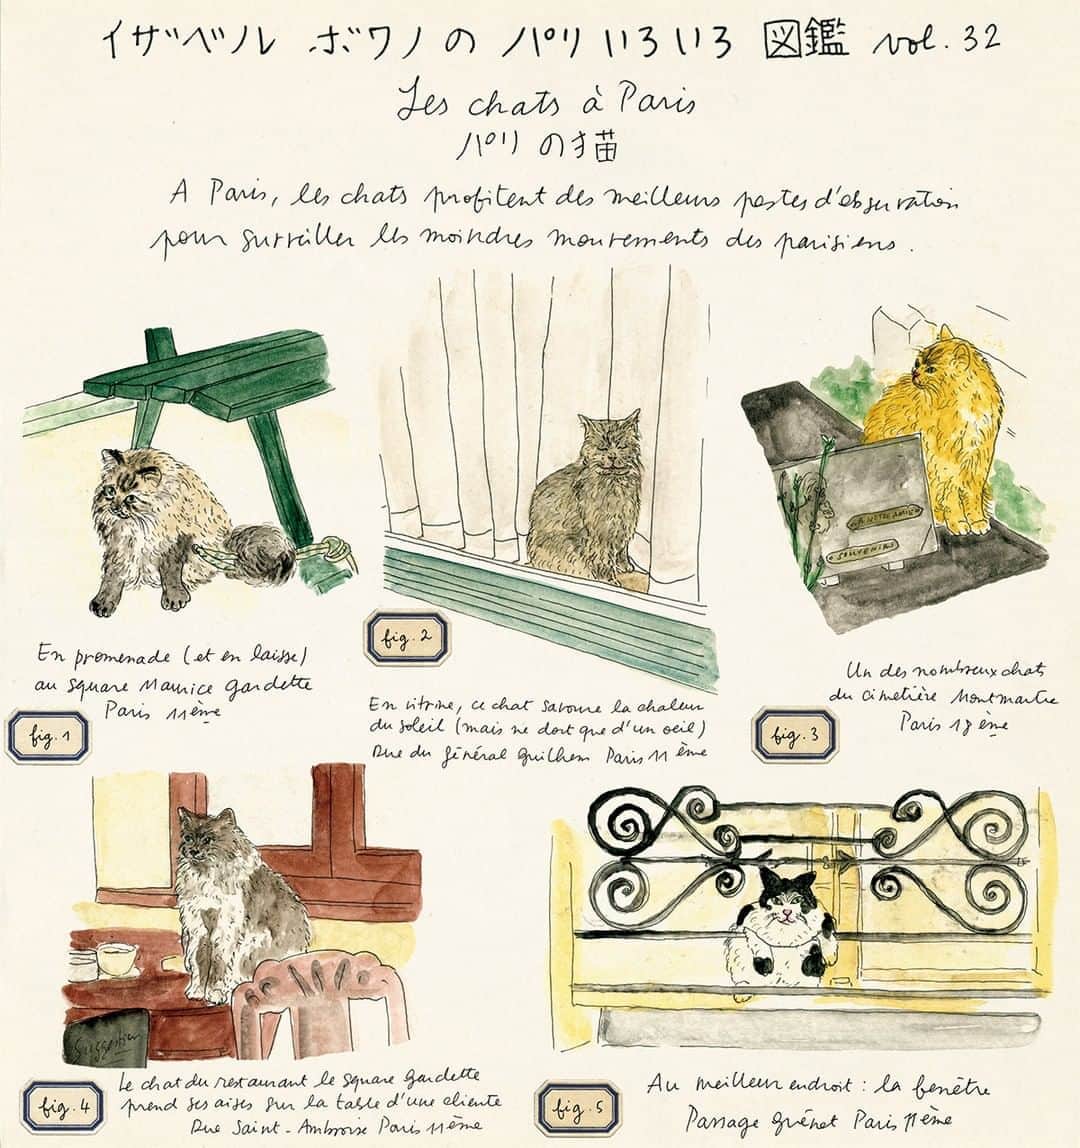 イザベル ボワノの パリいろいろ 図鑑 vol. 32
Les chats à Paris
パリの猫
A Paris, les chats profitent des meilleurs postes d'observation
pour surveiller les moindres mouvements des parisiens.
En promenade (et en laisse)
au square Maurice Gardette
Paris 11ème
fig. 1
fig. 2
En vitrine, ce chat savoure la chaleur
du soleil (mais ne dort que d'un oeil)
Rue du Général Guilhem Paris 11ème
SOUVENIRS
Un des nombreux chats
du cimetière Montmartre
Paris 18ème
fig. 3
Suggestion
Le chat du restaurant le square Gardette
prend ses aises sur la table d'une cliente
Rue Saint-Ambroise Paris 11ème
fig. 4
Au meilleur endroit : la fenêtre
Passage Guénot Paris 11ème
fig. 5